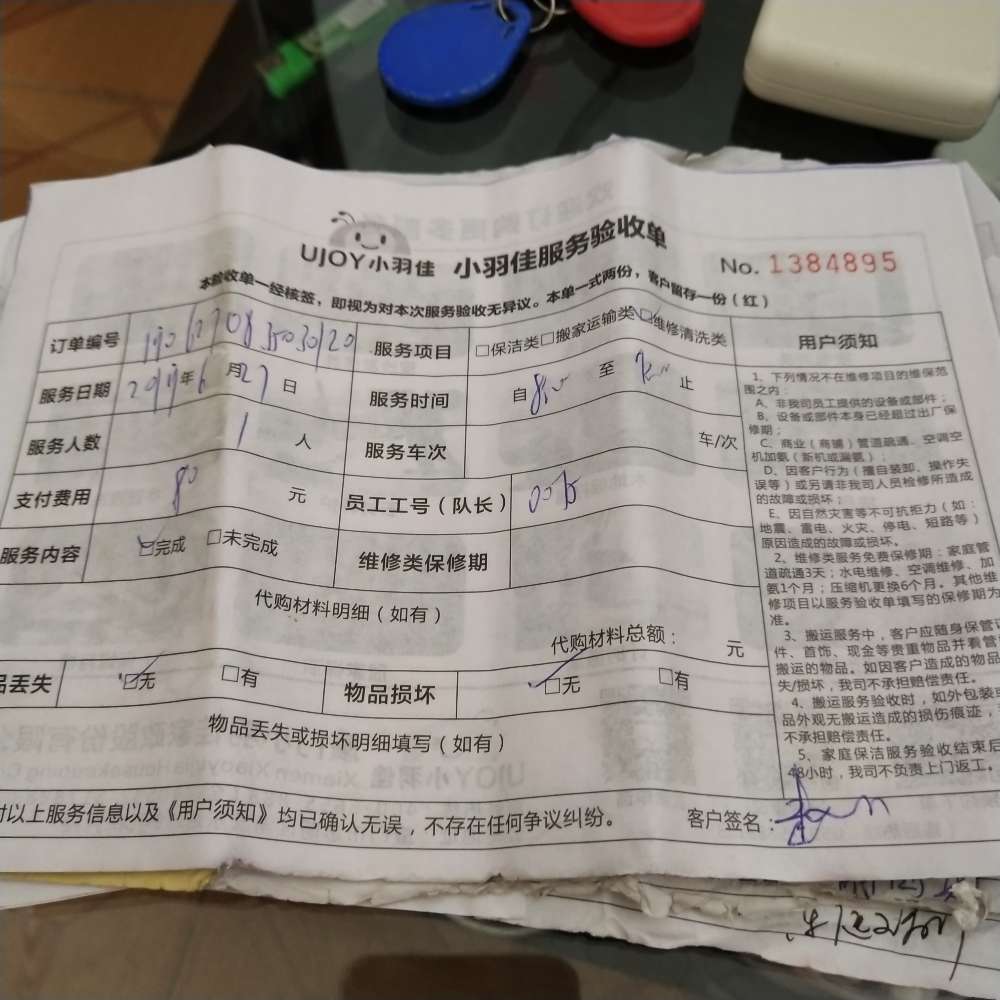 UJOY小羽佳 小羽佳服务验收单
No. 1384895
本验收单一经核签，即视为对本次服务验收无异议。本单一式两份，客户留存一份（红）
订单编号 服务项目 □保洁类□搬家运输类☑维修清洗类 用户须知
服务日期 2019年6月27日 服务时间 自 至 止
服务人数 1 人 服务车次 车/次
支付费用 80 元 员工工号（队长）
服务内容 ☑完成 □未完成 维修类保修期
代购材料明细（如有）
代购材料总额： 元
品丢失 ☑无 □有 物品损坏 ☑无 □有
物品丢失或损坏明细填写（如有）
对以上服务信息以及《用户须知》均已确认无误，不存在任何争议纠纷。 客户签名：
1、下列情况不在维修项目的维保范
围之内：
A、非我司员工提供的设备或部件；
B、设备或部件本身已经超过出厂保
修期；
C、商业（商铺）管道疏通、空调空
机加氨（新机或漏氨）；
D、因客户行为（擅自装卸、操作失
误等）或另请非我司人员检修所造成
的故障或损坏；
E、因自然灾害等不可抗拒力（如：
地震、雷电、火灾、停电、短路等）
原因造成的故障或损坏。
2、维修类服务免费保修期：家庭管
道疏通3天；水电维修、空调维修、加
氨1个月；压缩机更换6个月。其他维
修项目以服务验收单填写的保修期为
准。
3、搬运服务中，客户应随身保管证
件、首饰、现金等贵重物品并看管
搬运的物品。如因客户造成的物品
失/损坏，我司不承担赔偿责任。
4、搬运服务验收时，如外包装或
品外观无搬运造成的损伤痕迹，
不承担赔偿责任。
5、家庭保洁服务验收结束后
48小时，我司不负责上门返工。